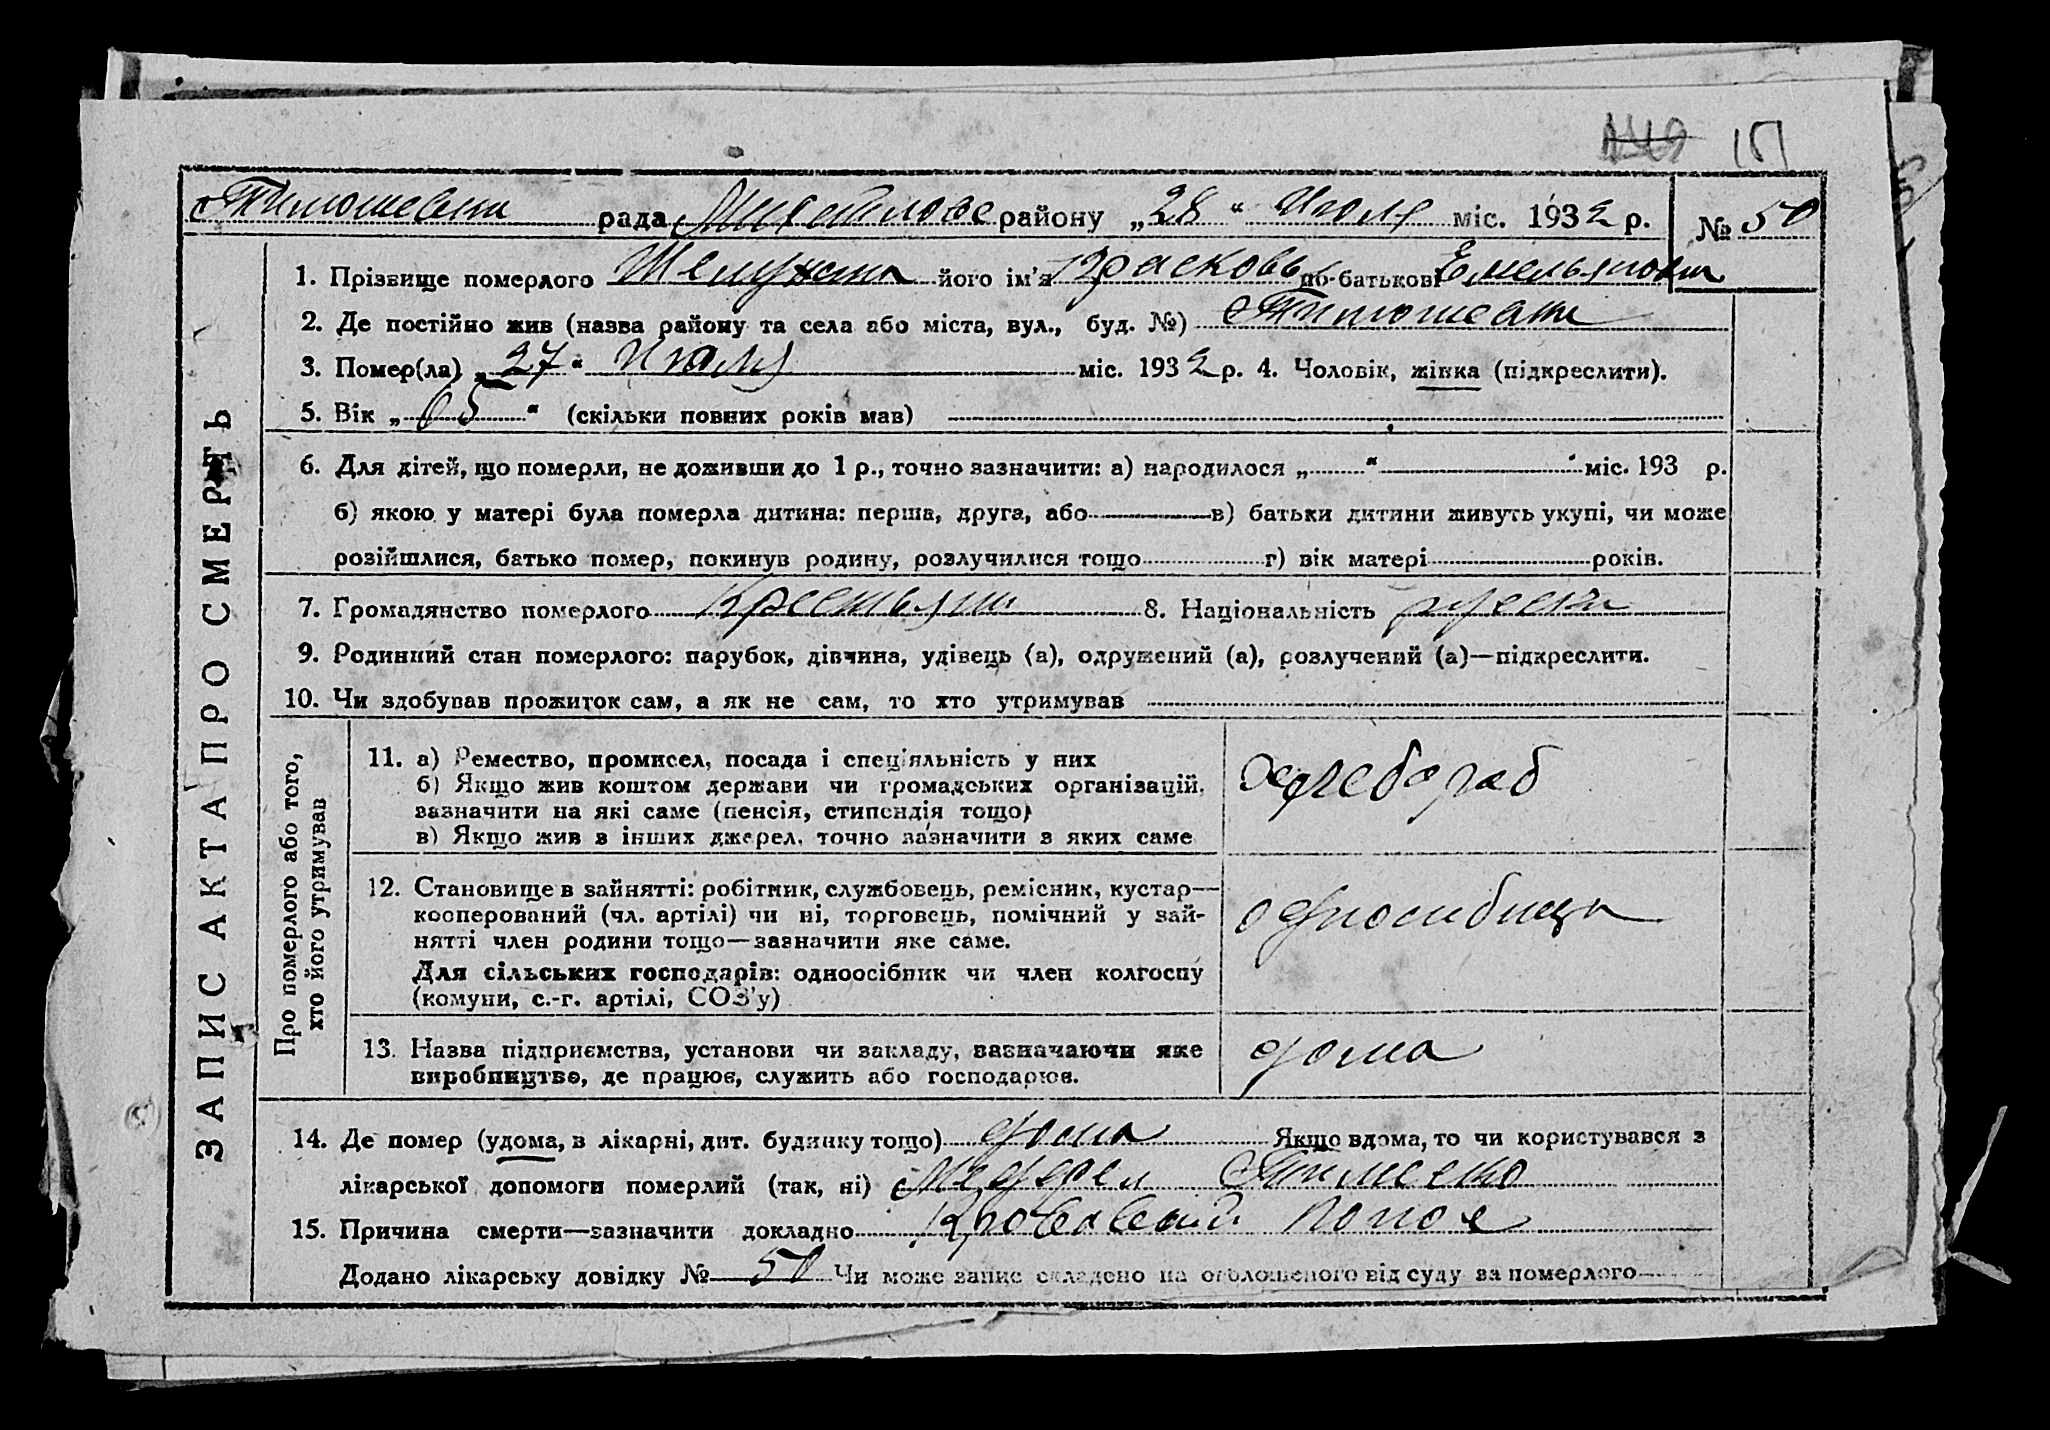 151
Тимошевки рада Михайлово району „28“ Июля міс. 1932 р. № 50
ЗАПИС АКТА ПРО СМЕРТЬ
1. Прізвище померлого його ім'я Прасковь по-батькові Емельяновна
2. Де постійно жив (назва району та села або міста, вул., буд. №) Тимошевки
3. Помер(ла) „27“ Июля міс. 1932 р. 4. Чоловік, жінка (підкреслити).
5. Вік „65“ (скільки повних років мав)
6. Для дітей, що померли, не доживши до 1 р., точно зазначити: а) народилося „ “ міс. 193 р.
б) якою у матері була померла дитина: перша, друга, або в) батьки дитини живуть укупі, чи може
розійшлися, батько помер, покинув родину, розлучилися тощо г) вік матері років.
7. Громадянство померлого 8. Національність руская
9. Родинний стан померлого: парубок, дівчина, удівець (а), одружений (а), розлучений (а)—підкреслити.
10. Чи здобував прожиток сам, а як не сам, то хто утримував
Про померлого або того,
хто його утримував
11. а) Ремество, промисел, посада і спеціяльність у них
б) Якщо жив коштом держави чи громадських організацій,
зазначити на які саме (пенсія, стипендія тощо)
в) Якщо жив з інших джерел, точно зазначити з яких саме
хлебороб
12. Становище в зайнятті: робітник, службовець, ремісник, кустар—
кооперований (чл. артілі) чи ні, торговець, помічний у зай-
нятті член родини тощо—зазначити яке саме.
Для сільських господарів: одноосібник чи член колгоспу
(комуни, с.-г. артілі, СОЗ'у)
13. Назва підприємства, установи чи закладу, зазначаючи яке
виробництво, де працює, служить або господарює.
дома
14. Де помер (удома, в лікарні, дит. будинку тощо) дома Якщо вдома, то чи користувався з
лікарської допомоги померлий (так, ні)
15. Причина смерти—зазначити докладно Кровавый понос
Додано лікарську довідку № 50 Чи може запис складено на оголошеного від суду за померлого